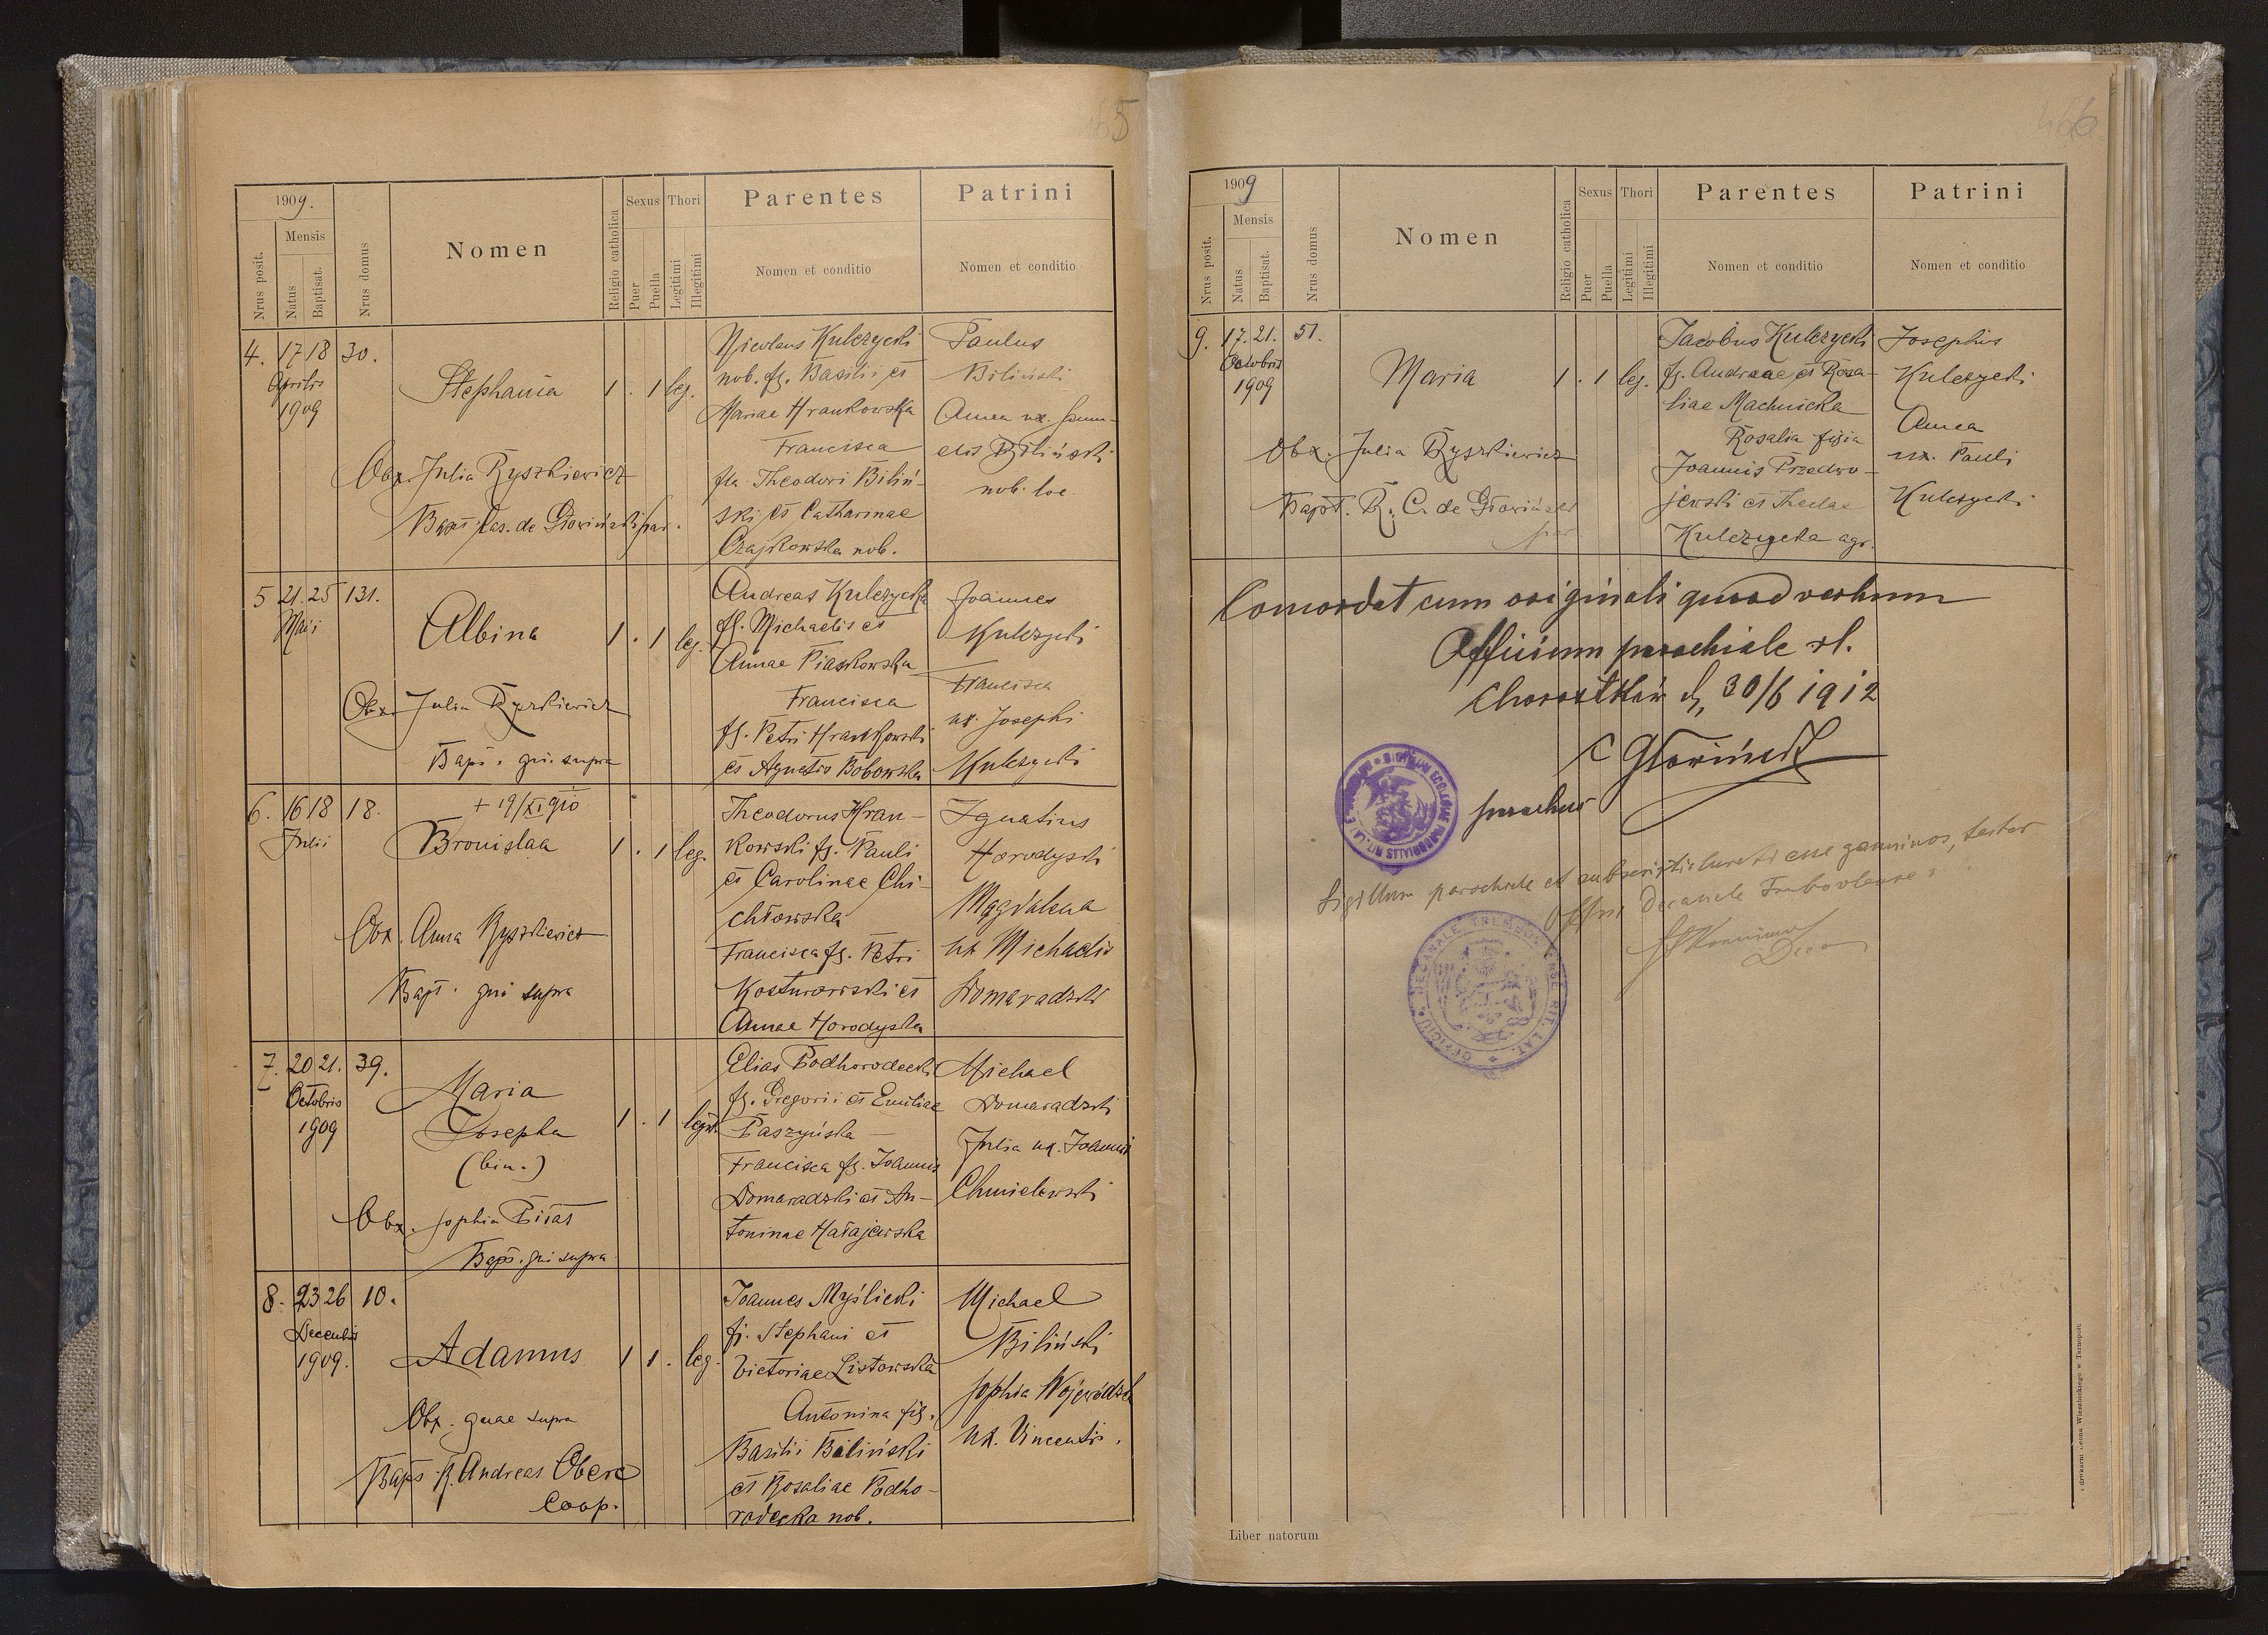 65
1909.
Nrus posit.
Mensis
Natus
Baptisat.
Nrus domus
Nomen
Religio catholica
Sexus
Puer
Puella
Thori
Legitimi
Illegitimi
Parentes
Nomen et conditio
Patrini
Nomen et conditio
4. 17 18 30.
Aprilis
1909
Stephania 1 . 1 leg.
Obx. Julia Ryszkiewicz
Bapt. Cas. de Głowiński par.
Nicolaus Kulczycki
nob. fs. Basilii et
Mariae Hrankowska
Francisca
fla Theodori Biliń-
ski et Catharinae
Czajkowska nob.
Paulus
Biliński
Anna ux. Samu-
elis Biliński
nob. loc.
5 21. 25 131.
Maii
Albina 1 . 1 leg.
Obx. Julia Ryszkiewicz
Bapt. qui supra
Andreas Kulczycki
fs. Michaelis et
Annae Piaskowska
Francisca
fs. Petri Hrankowski
et Agnetis Bobowska
Joannes
Kulczycki
Francisca
ux. Josephi
Kulczycki
6. 16 18 18.
Julii
+ 19/XI 910
Bronislaa 1 . 1 leg.
Obx. Anna Ryszkiewicz
Bapt. qui supra
Theodorus Hran-
kowski fs. Pauli
et Carolinae Chi-
chłowska
Francisca fs. Petri
Kosturowski et
Annae Horodyska
Ignatius
Horodyski
Magdalena
ux Michaelis
Domaradzki
7. 20 21. 39.
Octobris
1909
Maria
Josepha
(bin.) 1 . 1 legit.
Obx. Sophia Piłat
Bapt. qui supra
Elias Podhorodecki
fs. Gregorii et Emiliae
Paszyńska —
Francisca fs. Joannis
Domaradzki et An-
toninae Hałajewska
Michael
Domaradzki
Julia ux. Joannis
Chmielewski
8. 23 26 10.
Decembris
1909.
Adamus 1 1 . leg.
Obx. quae supra
Bapt. R. Andreas
Coop.
Joannes Myślicki
fs. Stephani et
Victoriae Listowska
Antonina fis.
Basilii Biliński
et Rosaliae Podho-
rodecka nob.
Michael
Biliński
Sophia
ux. Vincentii.
466
1909
Nrus posit.
Mensis
Natus
Baptisat.
Nrus domus
Nomen
Religio catholica
Sexus
Puer
Puella
Thori
Legitimi
Illegitimi
Parentes
Nomen et conditio
Patrini
Nomen et conditio
9. 17. 21. 51.
Octobris
1909
Maria 1 . 1 leg.
Obx. Julia Ryszkiewicz
Bapt. R. C. de Głowiński
par.
Jacobus Kulczycki
fs. Andreae et Rosa-
liae Machnicka
Rosalia filia
Joannis Przedwo-
jewski et Theclae
Kulczycka agr.
Josephus
Kulczycki
Anna
ux. Pauli
Kulczycki
Concordat cum originali quoad verbum
Officium parochiale rl.
Chorostków d, 30/6 1912
C Głowiński
parochus
Sigillum parochiale et subscriptionem esse genuinos, testor
Offm Decanale Trembovlense
OFFICIUM DECANALE TREMBOVLENSE RIT. LAT.
Liber natorum
Z drukarni Leona Wierzbickiego w Tarnopolu